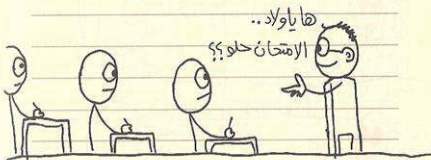 ها يا ولاد..
الامتحان حلو؟؟